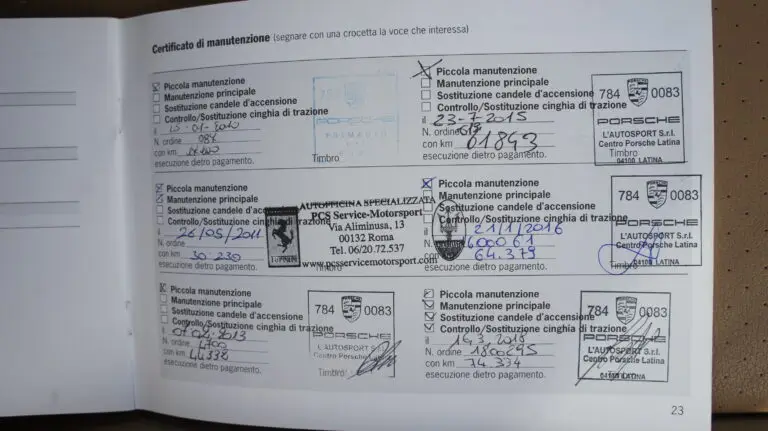 Certificato di manutenzione (segnare con una crocetta la voce che interessa)
Piccola manutenzione
Manutenzione principale
Sostituzione candele d'accensione
Controllo/Sostituzione cinghia di trazione
il
N. ordine 984
con km
esecuzione dietro pagamento.
Timbro
PORSCHE
Piccola manutenzione
Manutenzione principale
Sostituzione candele d'accensione
Controllo/Sostituzione cinghia di trazione
il 23-7-2015
N. ordine 617
con km 61843
esecuzione dietro pagamento.
Timbro
784 0083
PORSCHE
L'AUTOSPORT S.r.l.
Centro Porsche Latina
04100 LATINA
Piccola manutenzione
Manutenzione principale
Sostituzione candele d'accensione
Controllo/Sostituzione cinghia di trazione
il 26/05/2011
N. ordine
con km 30 230
esecuzione dietro pagamento.
Timbro
AUTOFFICINA SPECIALIZZATA
PCS Service-Motorsport
Via Aliminusa, 13
00132 Roma
Tel. 06/20.72.537
www.pcsservicemotorsport.com
Piccola manutenzione
Manutenzione principale
Sostituzione candele d'accensione
Controllo/Sostituzione cinghia di trazione
il 21/1/2016
N. ordine 1600061
con km 64.379
esecuzione dietro pagamento.
Timbro
784 0083
PORSCHE
L'AUTOSPORT S.r.l.
Centro Porsche Latina
04100 LATINA
Piccola manutenzione
Manutenzione principale
Sostituzione candele d'accensione
Controllo/Sostituzione cinghia di trazione
il
N. ordine 4700
con km 44332
esecuzione dietro pagamento.
Timbro
784 0083
PORSCHE
L'AUTOSPORT S.r.l.
Centro Porsche Latina
Piccola manutenzione
Manutenzione principale
Sostituzione candele d'accensione
Controllo/Sostituzione cinghia di trazione
il 14.3.2018
N. ordine 1800295
con km 74.334
esecuzione dietro pagamento.
Timbro
784 0083
PORSCHE
L'AUTOSPORT S.r.l.
Centro Porsche Latina
04100 LATINA
23